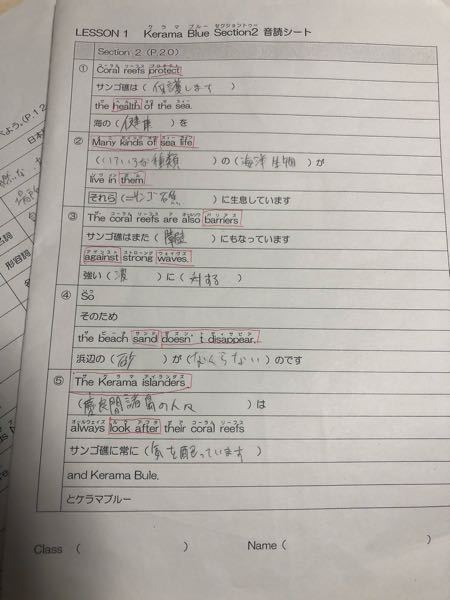 LESSON 1 Kerama Blue Section2 音読シート
Section 2 (P.20)
① Coral reefs protect
サンゴ礁は ( 保護します )
the health of the sea.
海の ( 健康 ) を
② Many kinds of sea life
( いろいろな種類 ) の ( 海洋生物 ) が
live in them.
それら (=サンゴ礁 ) に生息しています
③ The coral reefs are also barriers
サンゴ礁はまた ( 障壁 ) にもなっています
against strong waves.
強い ( 波 ) に ( 対する )
④ So
そのため
the beach sand doesn't disappear.
浜辺の ( 砂 ) が ( なくならない ) のです
⑤ The Kerama islanders
( 慶良間諸島の人々 ) は
always look after their coral reefs
サンゴ礁に常に ( 気を配っています )
and Kerama Bule.
とケラマブルー
Class ( ) Name ( )